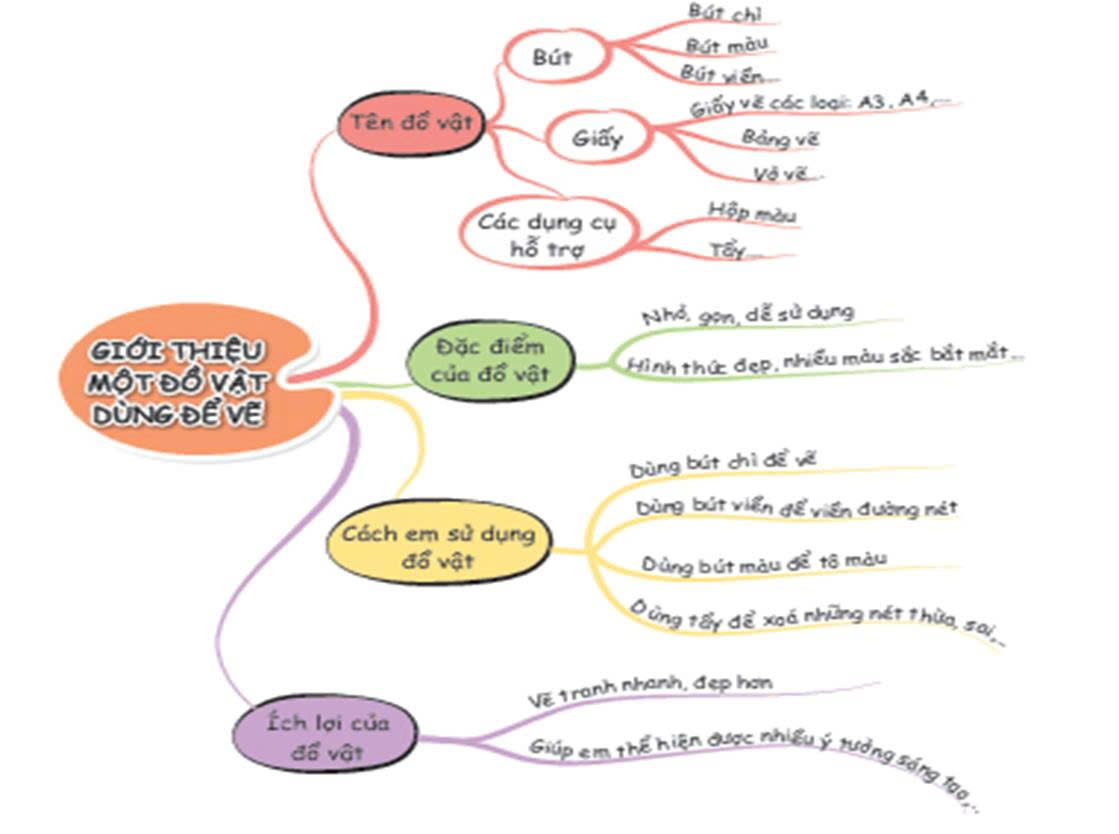 GIỚI THIỆU
MỘT ĐỒ VẬT
DÙNG ĐỂ VẼ
Tên đồ vật
Bút
Bút chì
Bút màu
Bút viền...
Giấy
Giấy vẽ các loại: A3, A4,...
Bảng vẽ
Vở vẽ...
Các dụng cụ
hỗ trợ
Hộp màu
Tẩy...
Đặc điểm
của đồ vật
Nhỏ, gọn, dễ sử dụng
Hình thức đẹp, nhiều màu sắc bắt mắt...
Cách em sử dụng
đồ vật
Dùng bút chì để vẽ
Dùng bút viền để viền đường nét
Dùng bút màu để tô màu
Dùng tẩy để xoá những nét thừa, sai,..
Ích lợi của
đồ vật
Vẽ tranh nhanh, đẹp hơn
Giúp em thể hiện được nhiều ý tưởng sáng tạo,..